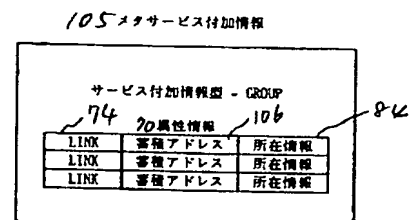 105 メタサービス付加情報
サービス付加情報型 - GROUP
74 70 属性情報 106 84
LINK 蓄積アドレス 所在情報
LINK 蓄積アドレス 所在情報
LINK 蓄積アドレス 所在情報